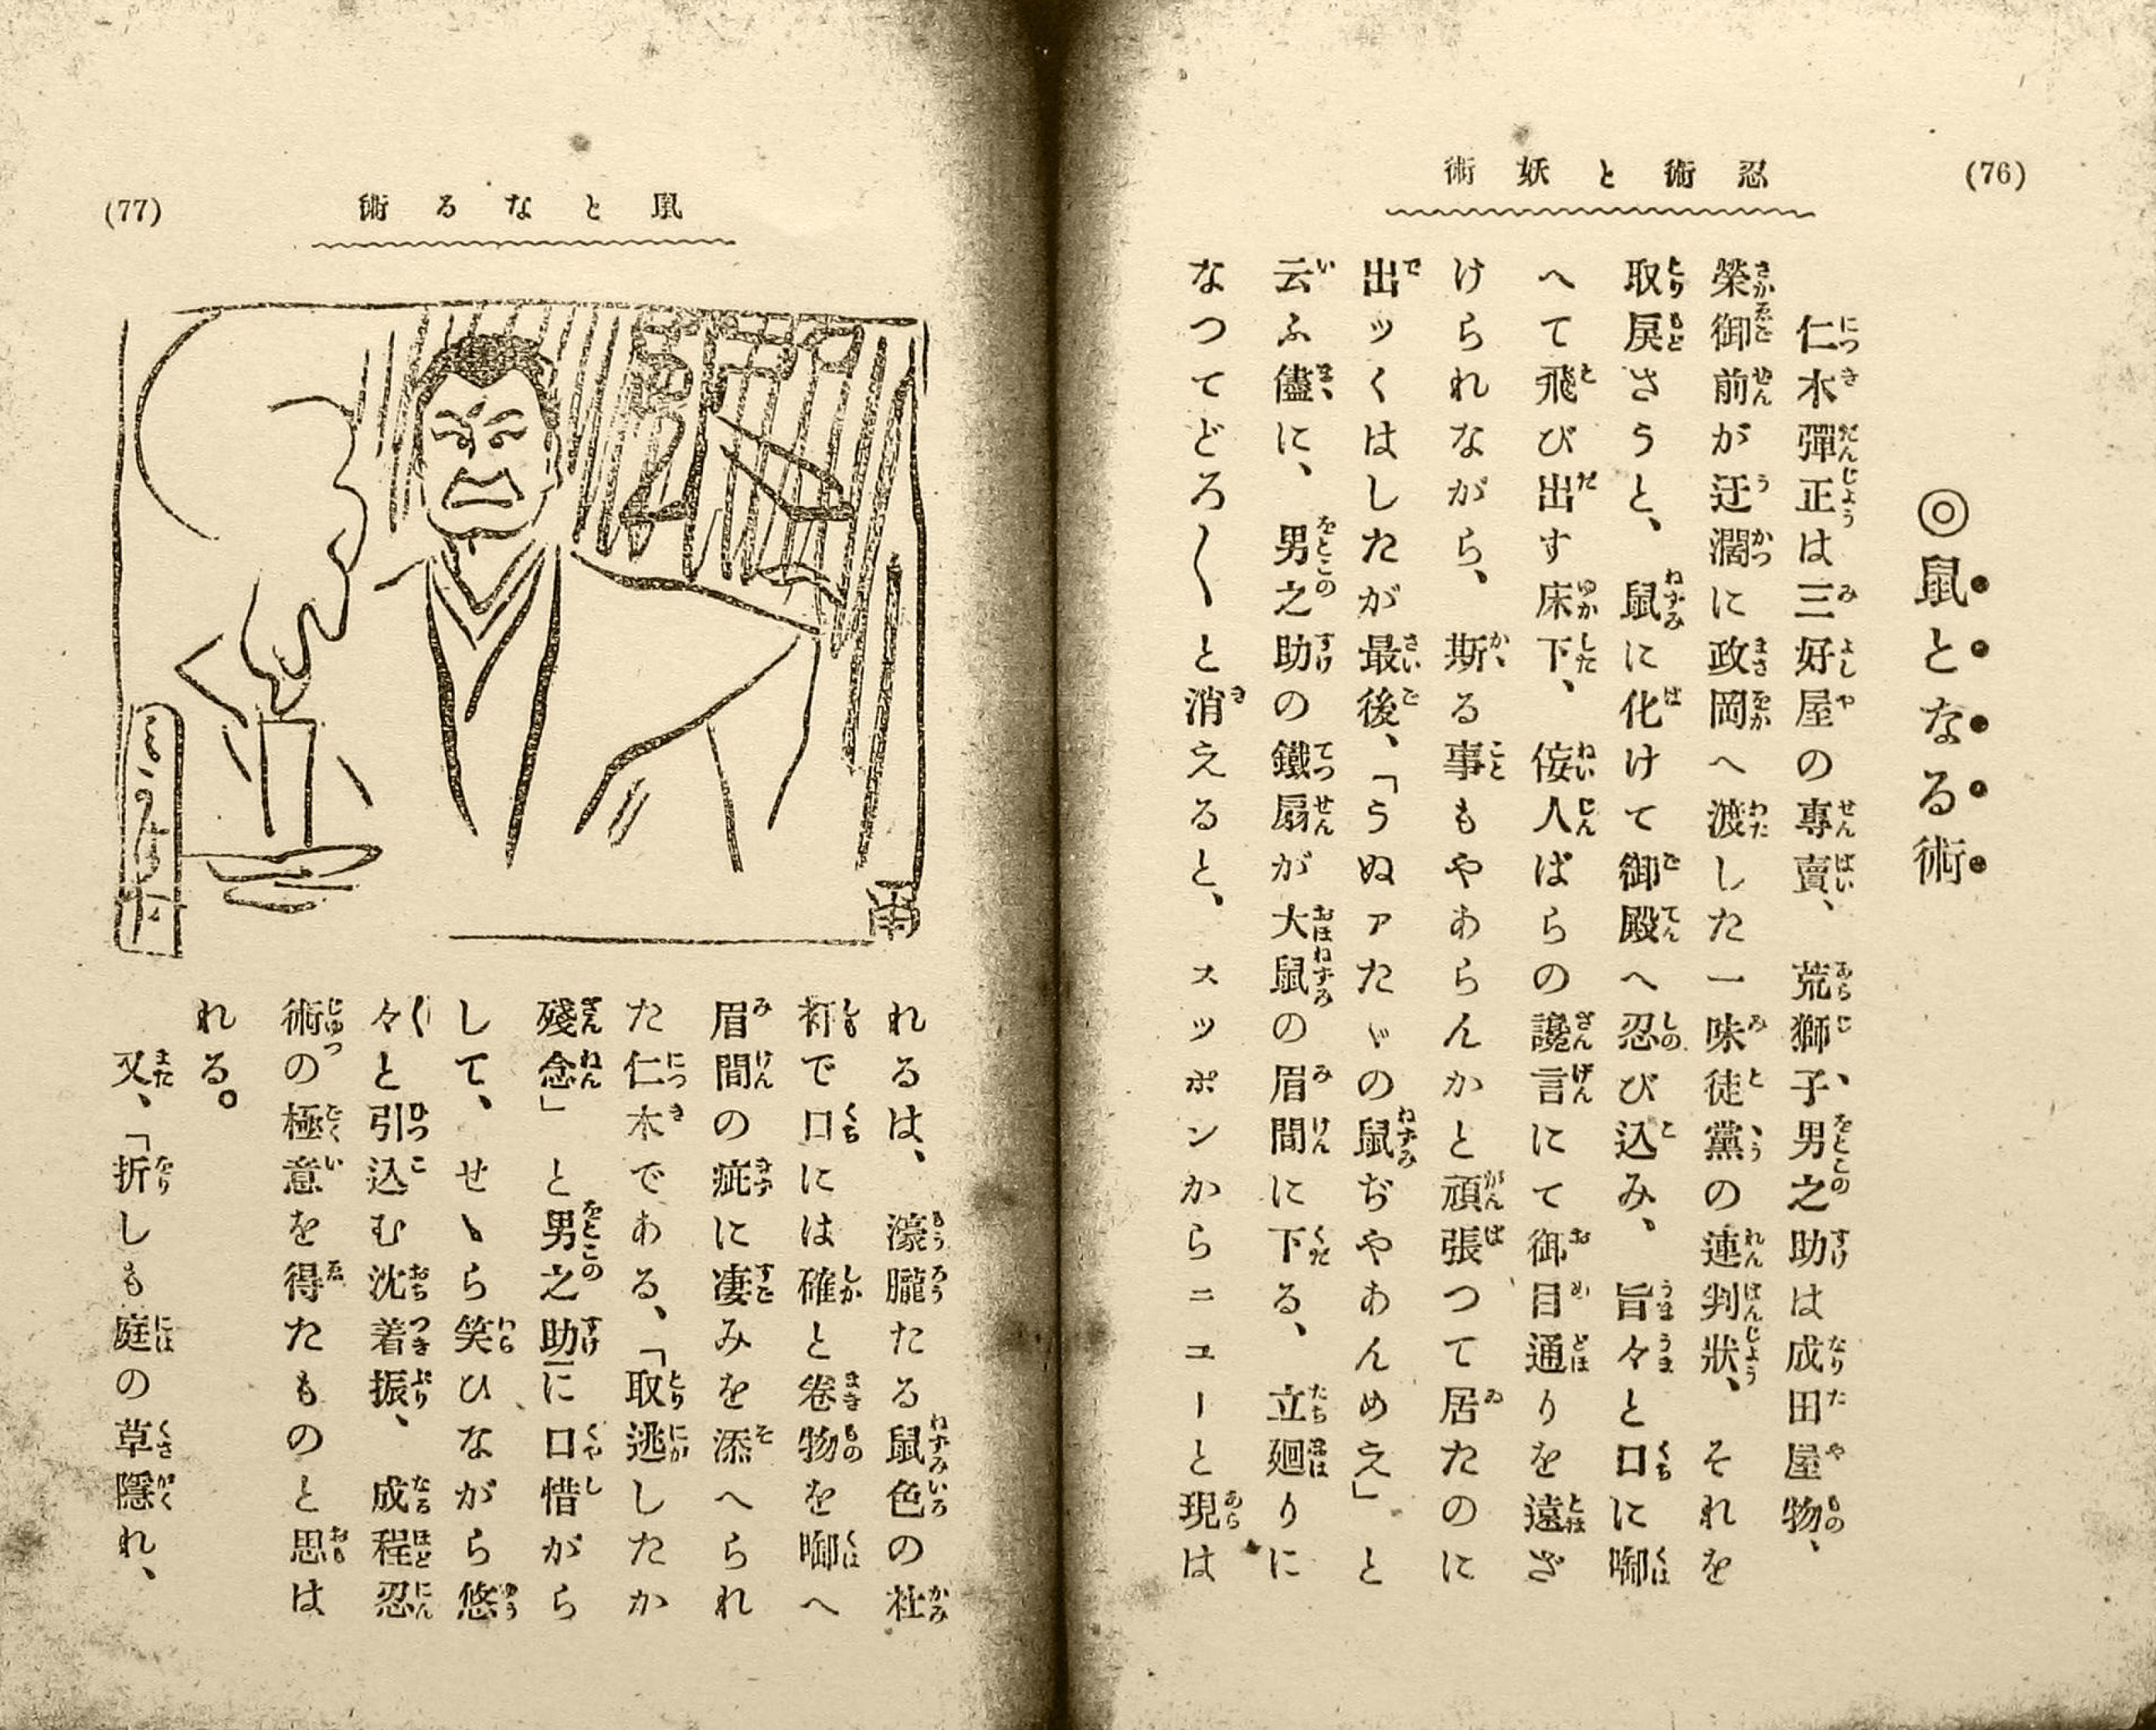 (76)
忍術と妖術
◎鼠となる術
仁木彈正は三好屋の專賣、荒獅子男之助は成田屋物、
榮御前が迂濶に政岡へ渡した一味徒黨の連判狀、それを
取戾さうと、鼠に化けて御殿へ忍び込み、旨々と口に啣
へて飛び出す床下、侫人ばらの讒言にて御目通りを遠ざ
けられながら、斯る事もやあらんかと頑張つて居たのに
出ツくはしたが最後、「うぬァたゞの鼠ぢやあんめえ」と
云ふ儘に、男之助の鐵扇が大鼠の眉間に下る、立廻りに
なつてどろ〱と消えると、スツポンからニユーと現は
(77)
鼠となる術
れるは、濠朧たる鼠色の𧘕
𧘔で口には確と卷物を啣へ
眉間の疵に凄みを添へられ
た仁木である、「取逃したか
殘念」と男之助に口惜がら
して、せゝら笑ひながら悠
々と引込む沈着振、成程忍
術の極意を得たものと思は
れる。
又、「折しも庭の草隱れ、